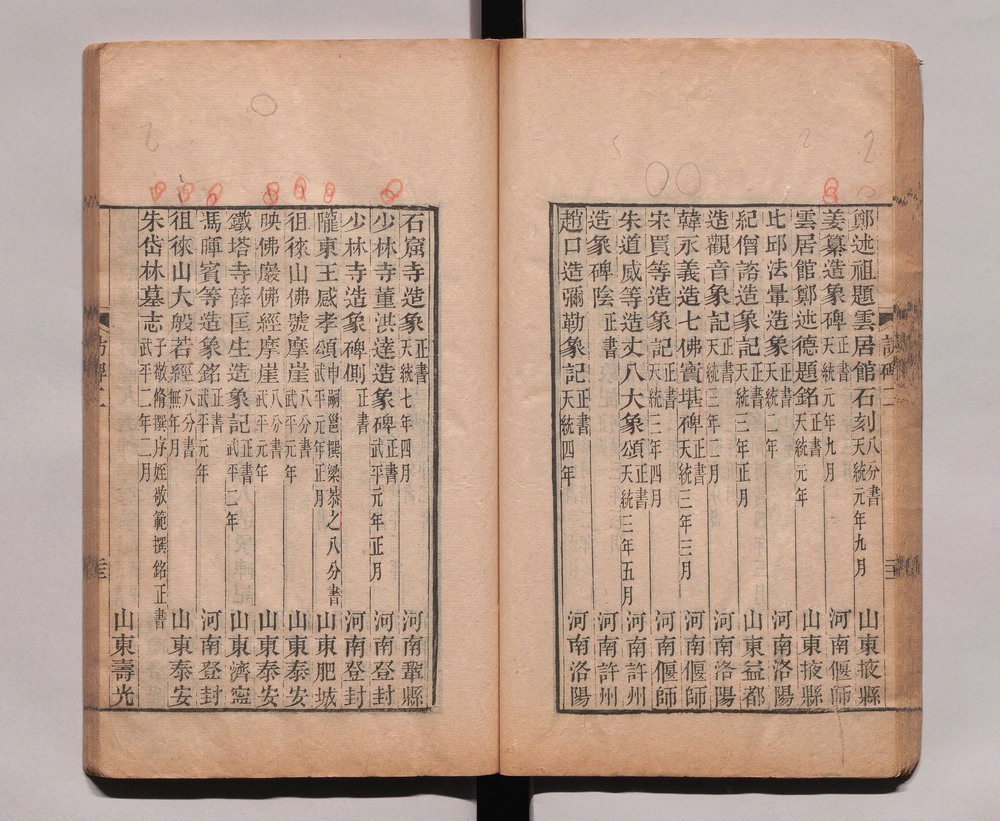 鄭述祖題雲居館石刻 八分書 天統元年九月 山東掖縣
姜纂造象碑 正書 天統元年九月 河南偃師
雲居館鄭述德題銘 正書 天統元年 山東掖縣
比邱法暈造象 正書 天統二年 河南洛陽
紀僧諮造象記 正書 天統三年正月 山東益都
造觀音象記 正書 天統三年二月 河南洛陽
韓永義造七佛寶堪碑 正書 天統三年三月 河南偃師
宋買等造象記 正書 天統三年四月 河南偃師
朱道威等造丈八大象頌 正書 天統三年五月 河南許州
造象碑陰 正書 河南許州
趙口造彌勒象記 正書 天統四年 河南洛陽
石窟寺造象 正書 天統七年四月 河南鞏縣
少林寺董洪達造象碑 正書 武平元年正月 河南登封
少林寺造象碑側 正書 河南登封
隴東王感孝頌 申嗣邕撰梁恭之八分書 武平元年正月 山東肥城
徂徠山佛號摩崖 八分書 武平元年 山東泰安
映佛巖佛經摩崖 八分書 武平元年 山東泰安
鐵塔寺薛匡生造象記 正書 武平二年 山東濟寧
馮暉賓等造象銘 正書 武平元年 河南登封
徂徠山大般若經 八分書 無年月 山東泰安
朱岱林墓志 子敬脩撰序姪敬範撰銘正書 武平二年二月 山東壽光